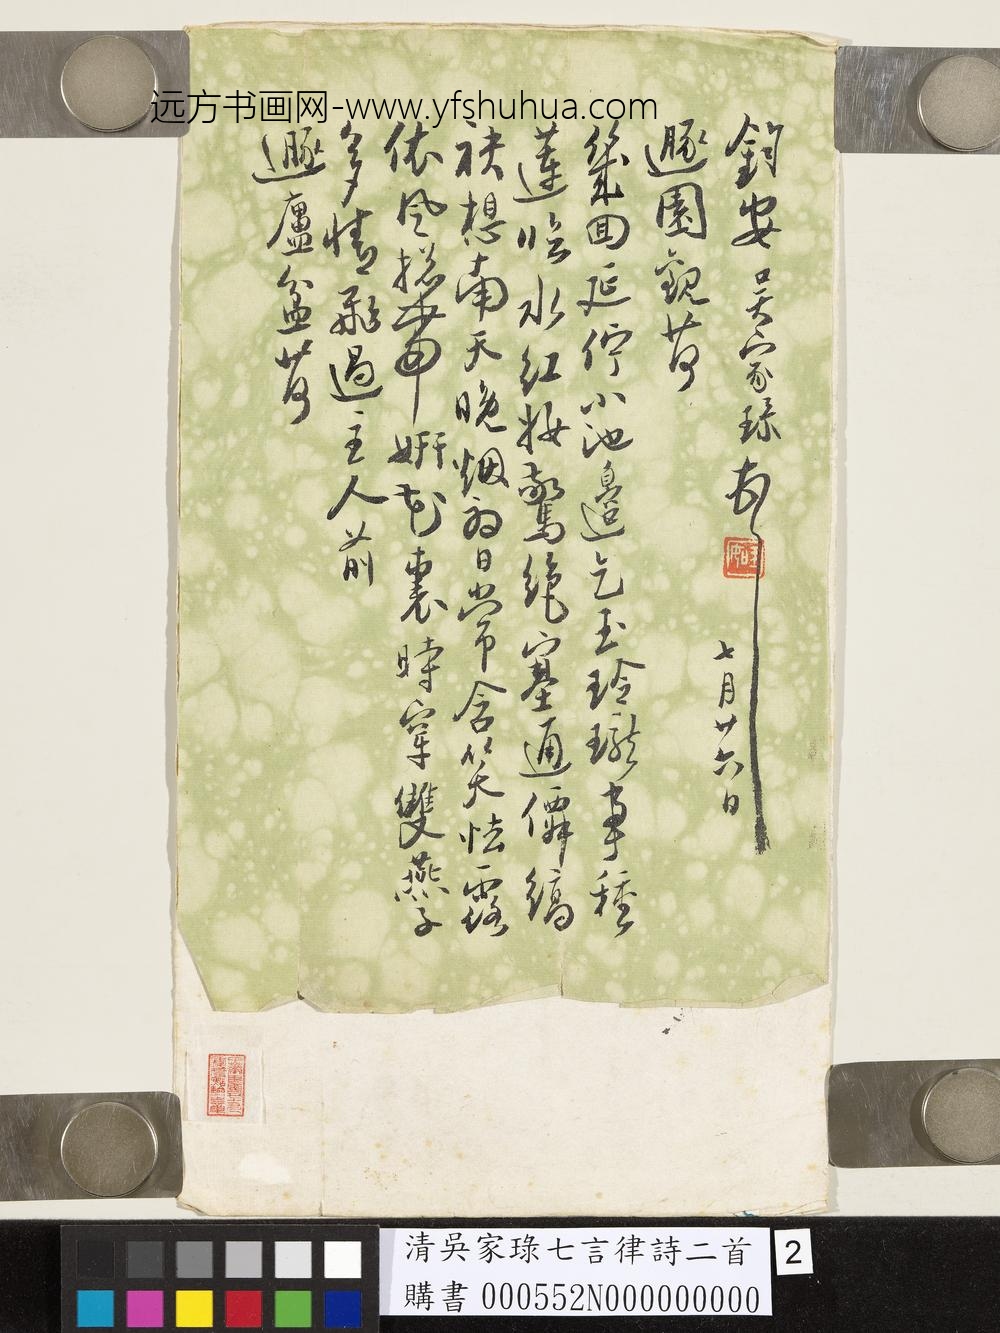 远方书画网-www.yfshuhua.com
鈞安 吳家琭
七月廿六日
遯園觀荷
幾回延佇小池邊乞玉玲瓏手種
蓮臨水紅妝驚絕塞通僊縞
袂想南天晚烟初日常含笑怯露
依風花裏時穿雙燕子
多情飛過主人前
遯廬盆荷
清吳家琭七言律詩二首
2
購書 000552N000000000